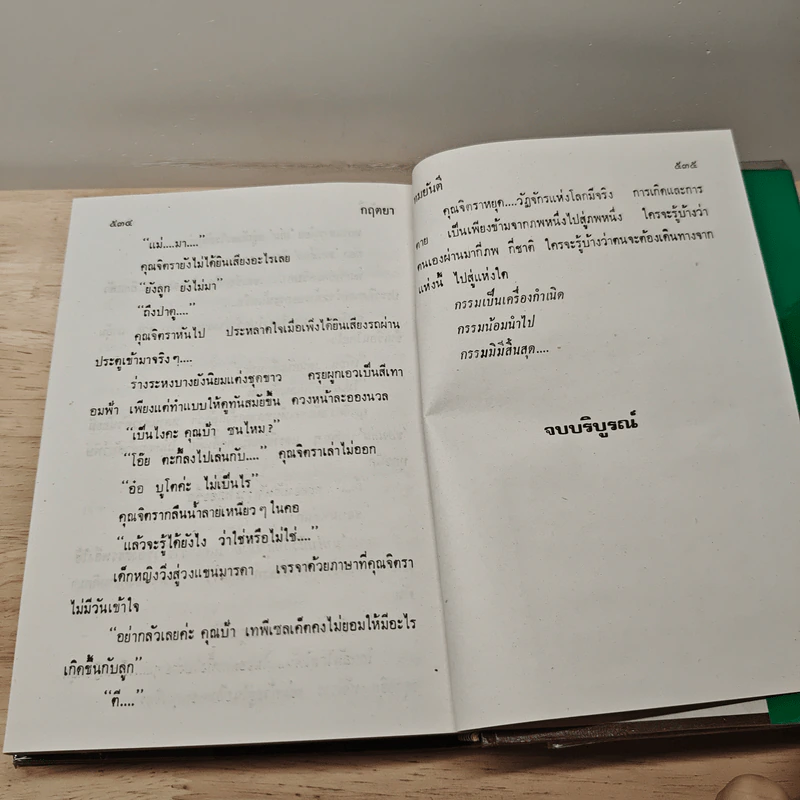 ๕๓๔
กฤตยา
“แม่....มา....”
คุณจิตรายังไม่ได้ยินเสียงอะไรเลย
“ยังลูก ยังไม่มา”
“ถึงปาตู....”
คุณจิตราหันไป ประหลาดใจเมื่อเพิ่งได้ยินเสียงรถผ่าน
ประตูเข้ามาจริงๆ....
ร่างระหงบางยังนิยมแต่งชุดขาว ครุยผูกเอวเป็นสีเทา
อมฟ้า เพียงแต่ทำแบบให้ดูทันสมัยขึ้น ดวงหน้าละอองนวล
“เป็นไงคะ คุณป้า ซนไหม?”
“โอ๊ย ตะกี้ลงไปเล่นกับ....” คุณจิตราเล่าไม่ออก
“อ๋อ บูโตค่ะ ไม่เป็นไร”
คุณจิตรากลืนน้ำลายเหนียวๆ ในคอ
“แล้วจะรู้ได้ยังไง ว่าใช่หรือไม่ใช่....”
เด็กหญิงวิ่งสู่วงแขนมารดา เจรจาด้วยภาษาที่คุณจิตรา
ไม่มีวันเข้าใจ
“อย่ากลัวเลยค่ะ คุณป้า เทพีเซลเค็ตคงไม่ยอมให้มีอะไร
เกิดขึ้นกับลูก”
“ตี....”
ทมยันตี
๕๓๕
คุณจิตราหยุด....วัฏจักรแห่งโลกมีจริง การเกิดและการ
ตาย เป็นเพียงข้ามจากภพหนึ่งไปสู่ภพหนึ่ง ใครจะรู้บ้างว่า
ตนเองผ่านมากี่ภพ กี่ชาติ ใครจะรู้บ้างว่าตนจะต้องเดินทางจาก
แห่งนี้ ไปสู่แห่งใด
กรรมเป็นเครื่องกำเนิด
กรรมน้อมนำไป
กรรมมิมีสิ้นสุด....
จบบริบูรณ์